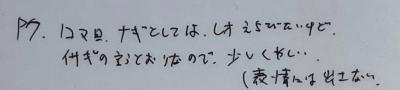 P7. 1コマ目. ナギとしては、えらびたいけど、
の言うとおりなので、少しくやしい..
(表情には出さない